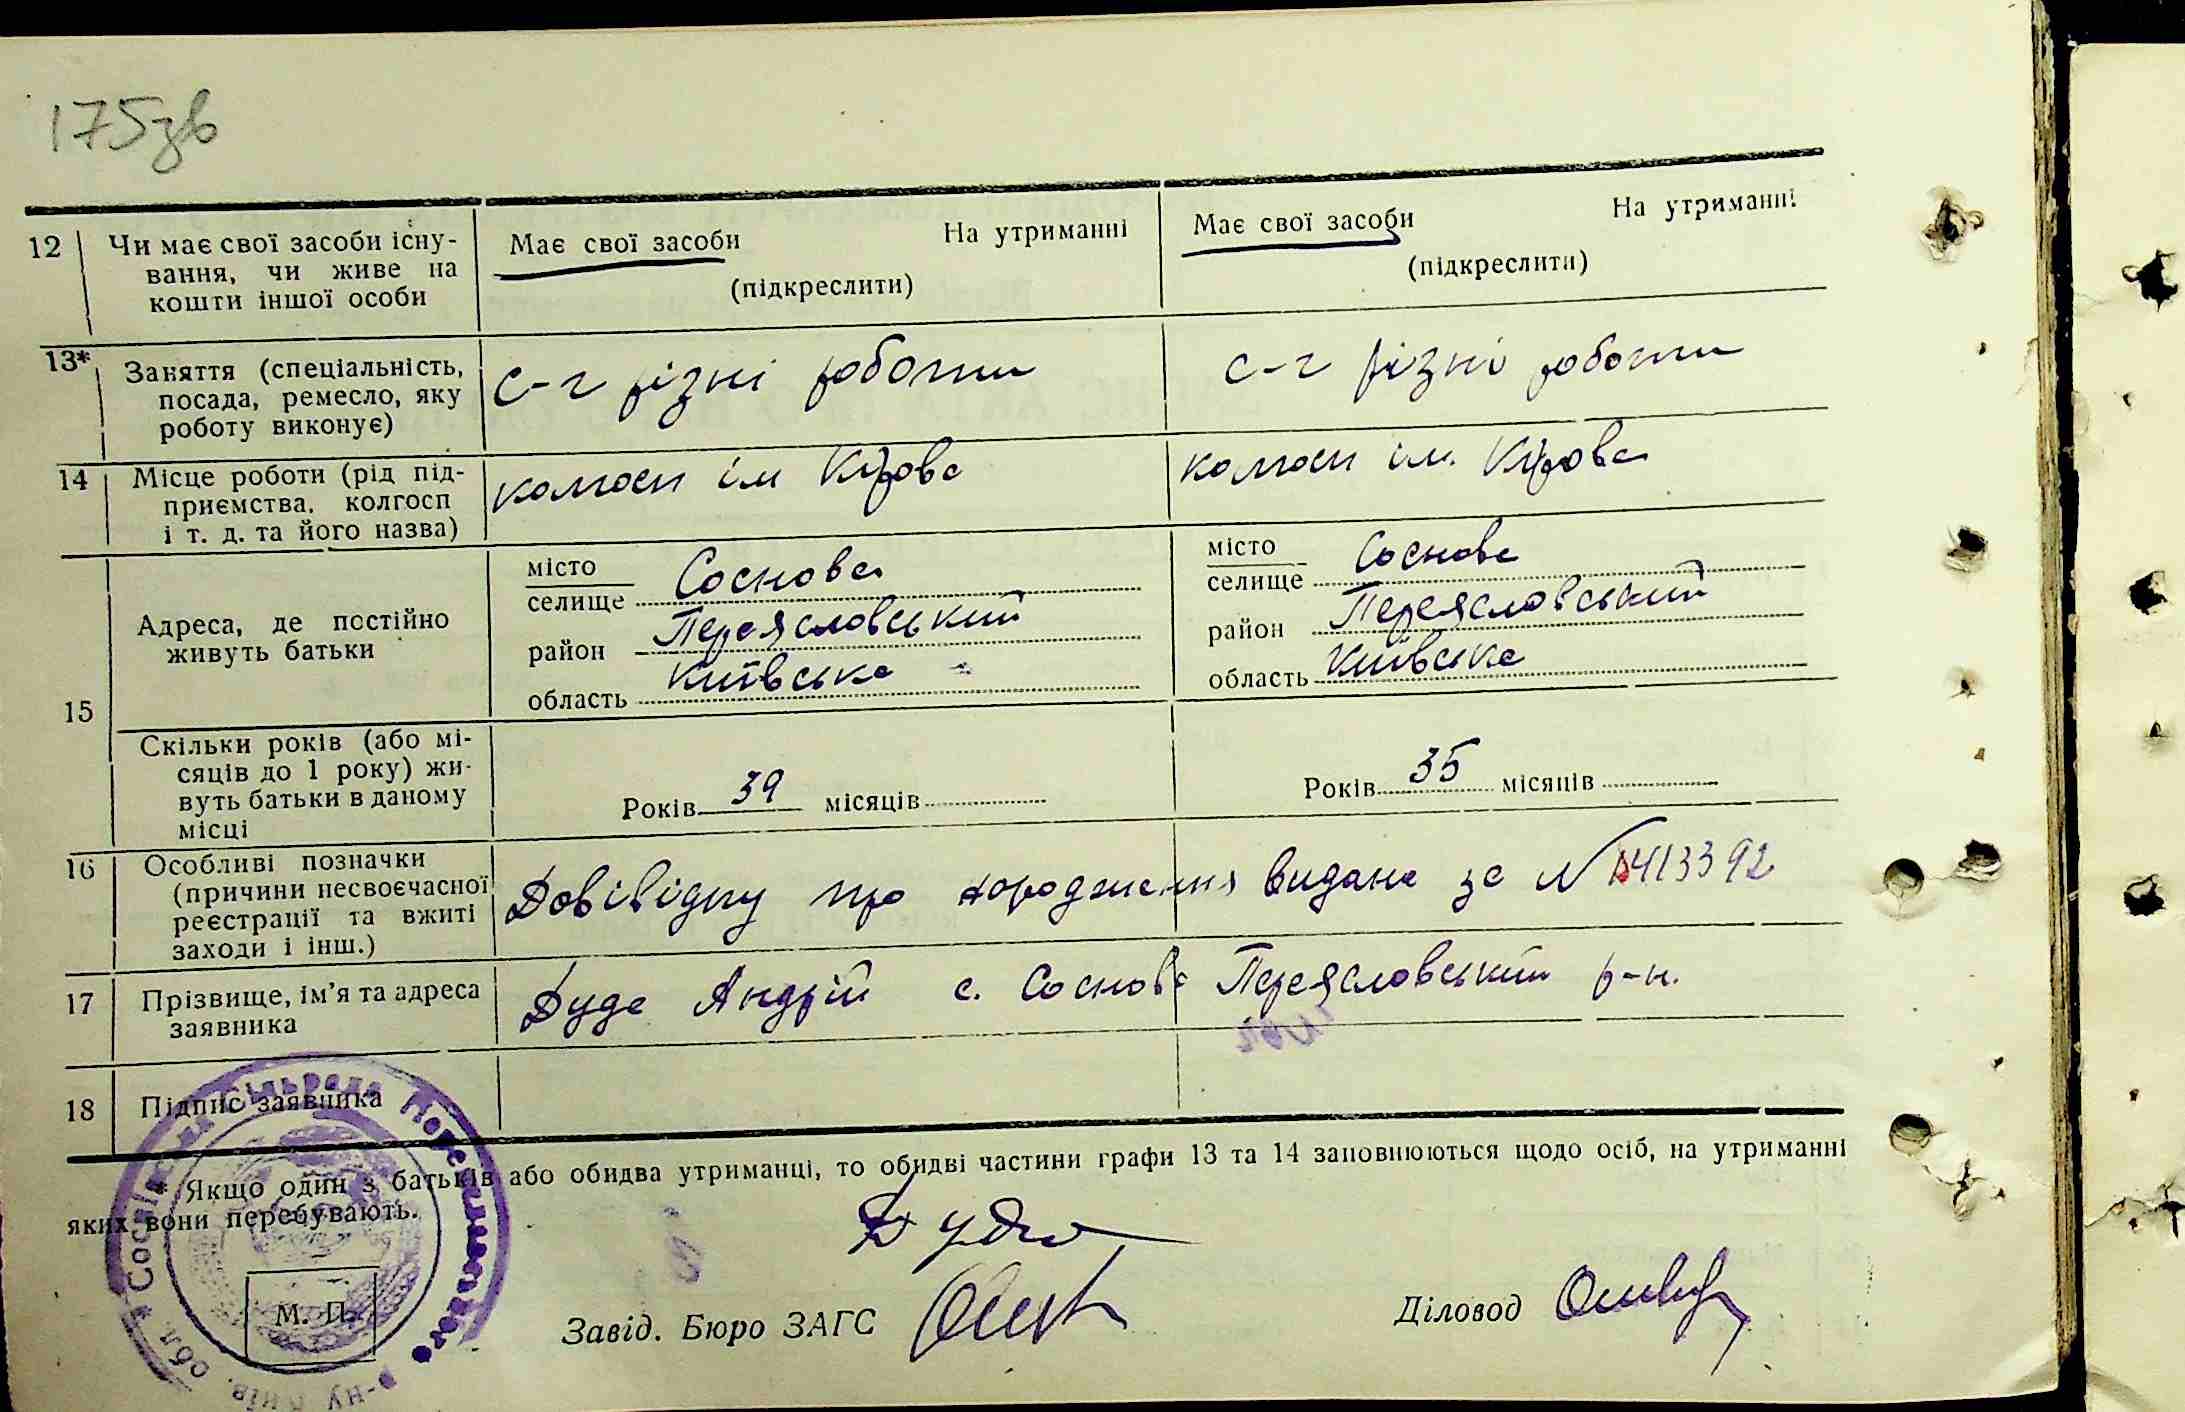 175зв
12 Чи має свої засоби існу-
вання, чи живе на
кошти іншої особи
Має свої засоби На утриманні
(підкреслити)
Має свої засоби На утриманні
(підкреслити)
13* Заняття (спеціальність,
посада, ремесло, яку
роботу виконує)
с-г різні роботи
с-г різні роботи
14 Місце роботи (рід під-
приємства, колгосп
і т. д. та його назва)
колгосп ім Кірова
колгосп ім. Кірова
15 Адреса, де постійно
живуть батьки
місто
селище Соснова
район Переясловський
область Київська
місто
селище Соснова
район Переясловський
область Київська
Скільки років (або мі-
сяців до 1 року) жи-
вуть батьки в даному
місці
Років 39 місяців
Років 35 місяців
16 Особливі позначки
(причини несвоєчасної
реєстрації та вжиті
заходи і інш.)
Довівідку про народження видана за № 413392
17 Прізвище, ім'я та адреса
заявника
Дуда Андрій с. Соснова Переясловський р-н.
18 Підпис заявника
* Якщо один з батьків або обидва утриманці, то обидві частини графи 13 та 14 заповнюються щодо осіб, на утриманні
яких вони перебувають.
Дуда
М. П.
Завід. Бюро ЗАГС
Діловод
Соснівська Сільрада Переяславського р-ну Київ. обл.